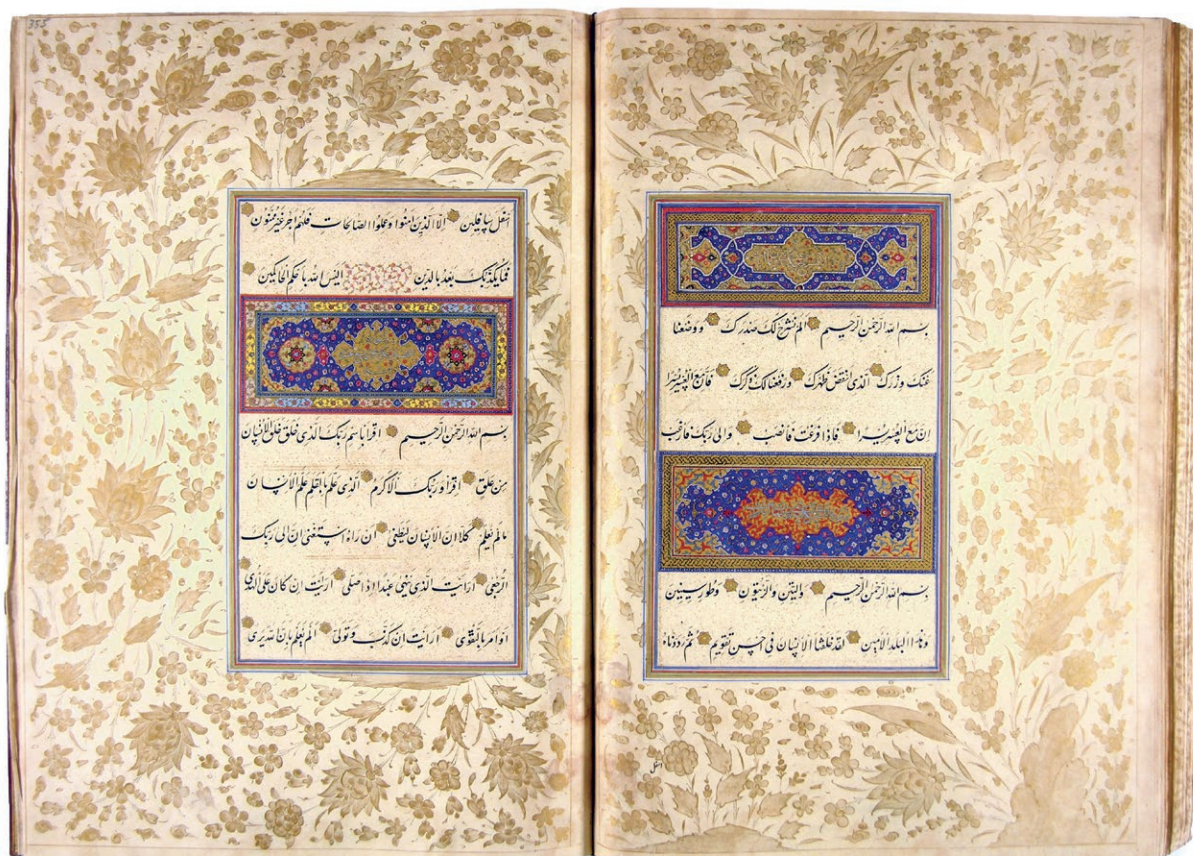 بسم الله الرحمن الرحيم الم نشرح لك صدرك ووضعنا
عنك وزرك الذى انقض ظهرك ورفعنا لك ذكرك فان مع العسر يسرا
ان مع العسر يسرا فاذا فرغت فانصب والى ربك فارغب
بسم الله الرحمن الرحيم والتين والزيتون وطور سينين
وهذا البلد الامين لقد خلقنا الانسان فى احسن تقويم ثم رددناه
اسفل
355
اسفل سافلين الا الذين امنوا وعملوا الصالحات فلهم اجر غير ممنون
فما يكذبك بعد بالدين اليس الله باحكم الحاكمين
بسم الله الرحمن الرحيم اقرا باسم ربك الذى خلق خلق الانسان
من علق اقرا وربك الاكرم الذى علم بالقلم علم الانسان
مالم يعلم كلا ان الانسان ليطغى ان راه استغنى ان الى ربك
الرجعى ارايت الذى ينهى عبدا اذا صلى ارايت ان كان على الهدى
او امر بالتقوى ارايت ان كذب وتولى الم يعلم بان الله يرى